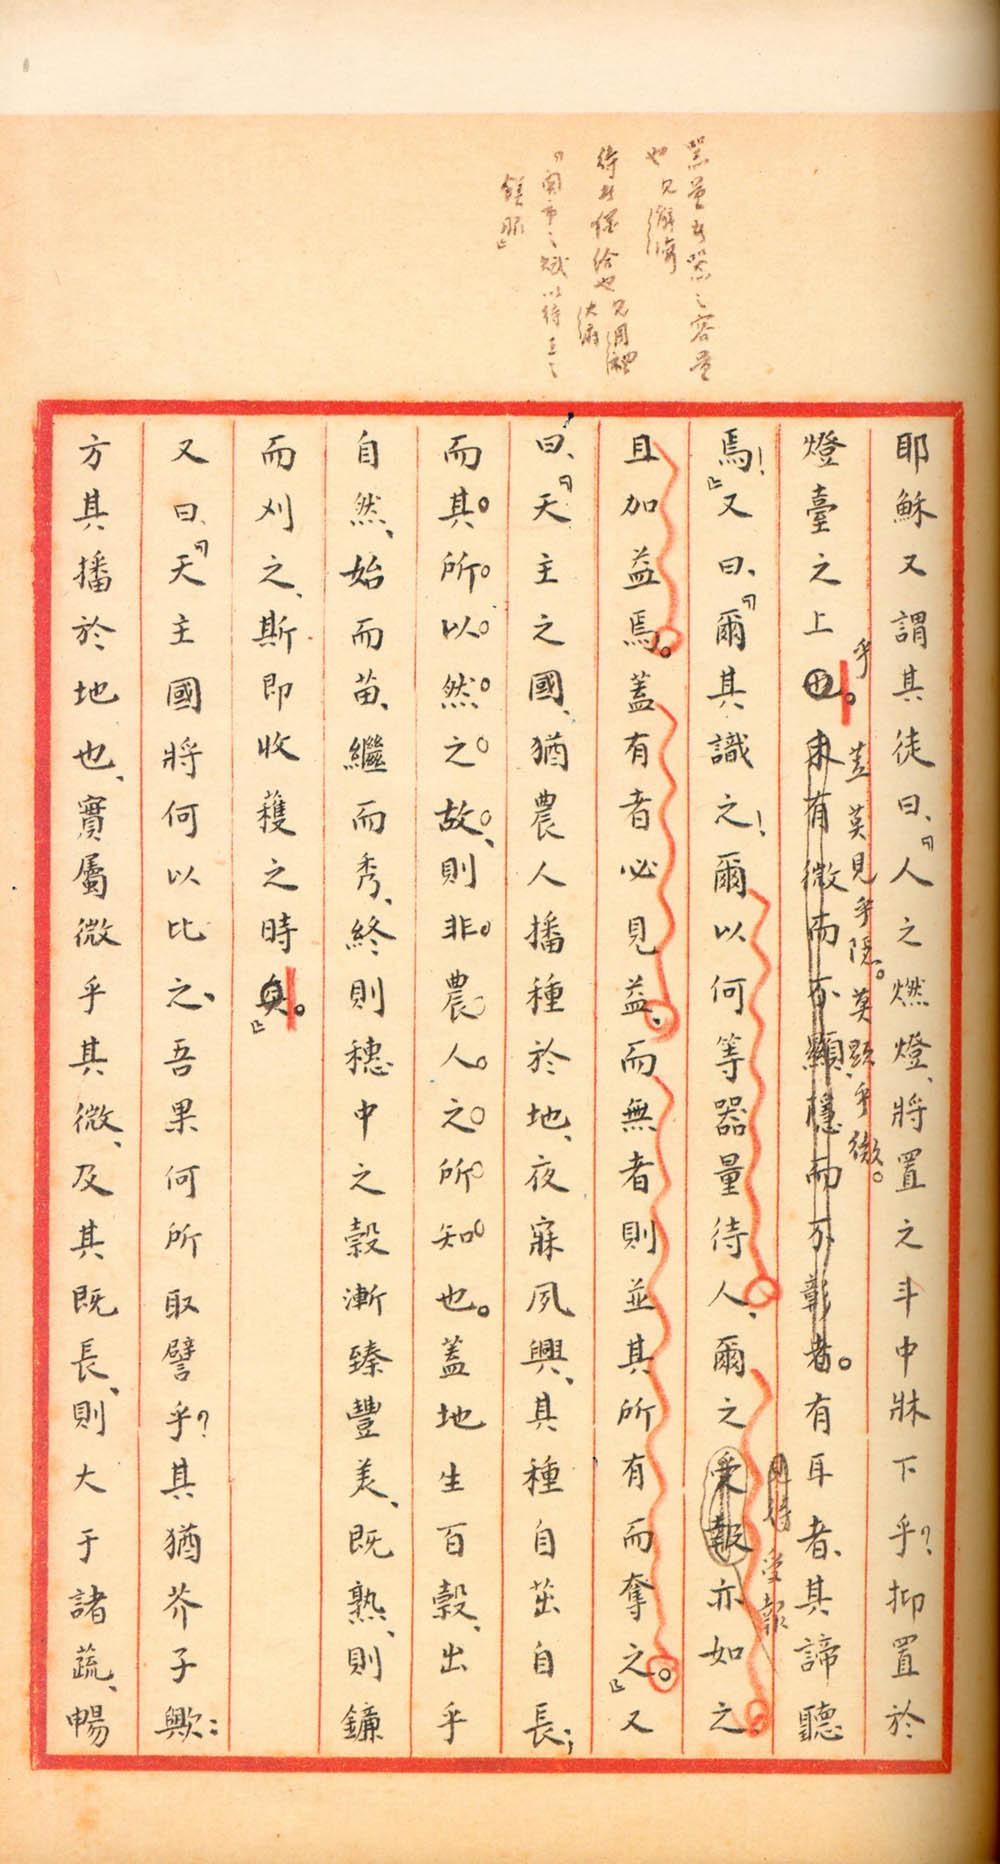 器量者器之容量
也見辭海
待者儲給也見周禮
大府
『關市之賦以待王之
膳服』
耶穌又謂其徒曰、『人之燃燈、將置之斗中牀下乎？抑置於
燈臺之上也。未有微而不顯、隱而不彰者。有耳者、其諦聽
乎
蓋莫見乎隱。莫顯乎微。
焉！』又曰、『爾其識之！爾以何等器量待人、爾之受報亦如之、
待受報
且加益焉。蓋有者必見益、而無者則並其所有而奪之。』又
曰、『天主之國、猶農人播種於地、夜寐夙興、其種自茁自長；
而其所以然之故、則非農人之所知也。蓋地生百穀、出乎
自然、始而苗、繼而秀、終則穗中之穀漸臻豐美、既熟、則鐮
而刈之、斯即收穫之時矣。』
又曰、『天主國將何以比之、吾果何所取譬乎？其猶芥子歟：
方其播於地也、實屬微乎其微、及其既長、則大于諸蔬、暢